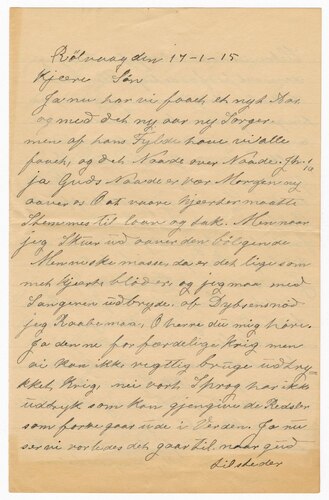 Rölvaag den 17-1-15
Kjære Søn
Ja nu har vi faaet et nyt Aar
og med det ny aar ny Sorger
men af hans Fylde have vi alle
faaet, og det Naade over Naade. Joh-1/16
ja Guds Naade er vær Morgen ny
aaver os O at vaare hjærter maatte
stemmes til lov og tak. Men naar
jeg Skuer ud aaver den bölgende
Menneske masse, da er det lige som
mit hjærte blöder og jeg maa med
Sangeren udbryde, af Dybsens nöd
jeg Raabe maa, O herre du mig höre.
Ja denne for færdelige krig men
vi kan ikke rigttig bruge udtry-
kket, Krig, nu vort Sprog har ikke
udtryk som kan gjengive de Redsler
som forregaar ude i Verden. Ja nu
ser vi vorledes det gaar til naar gud
tilsteder